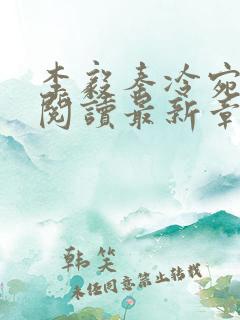 李毅秦冷宛
閱讀最新章
韩笑
未经同意禁止转载